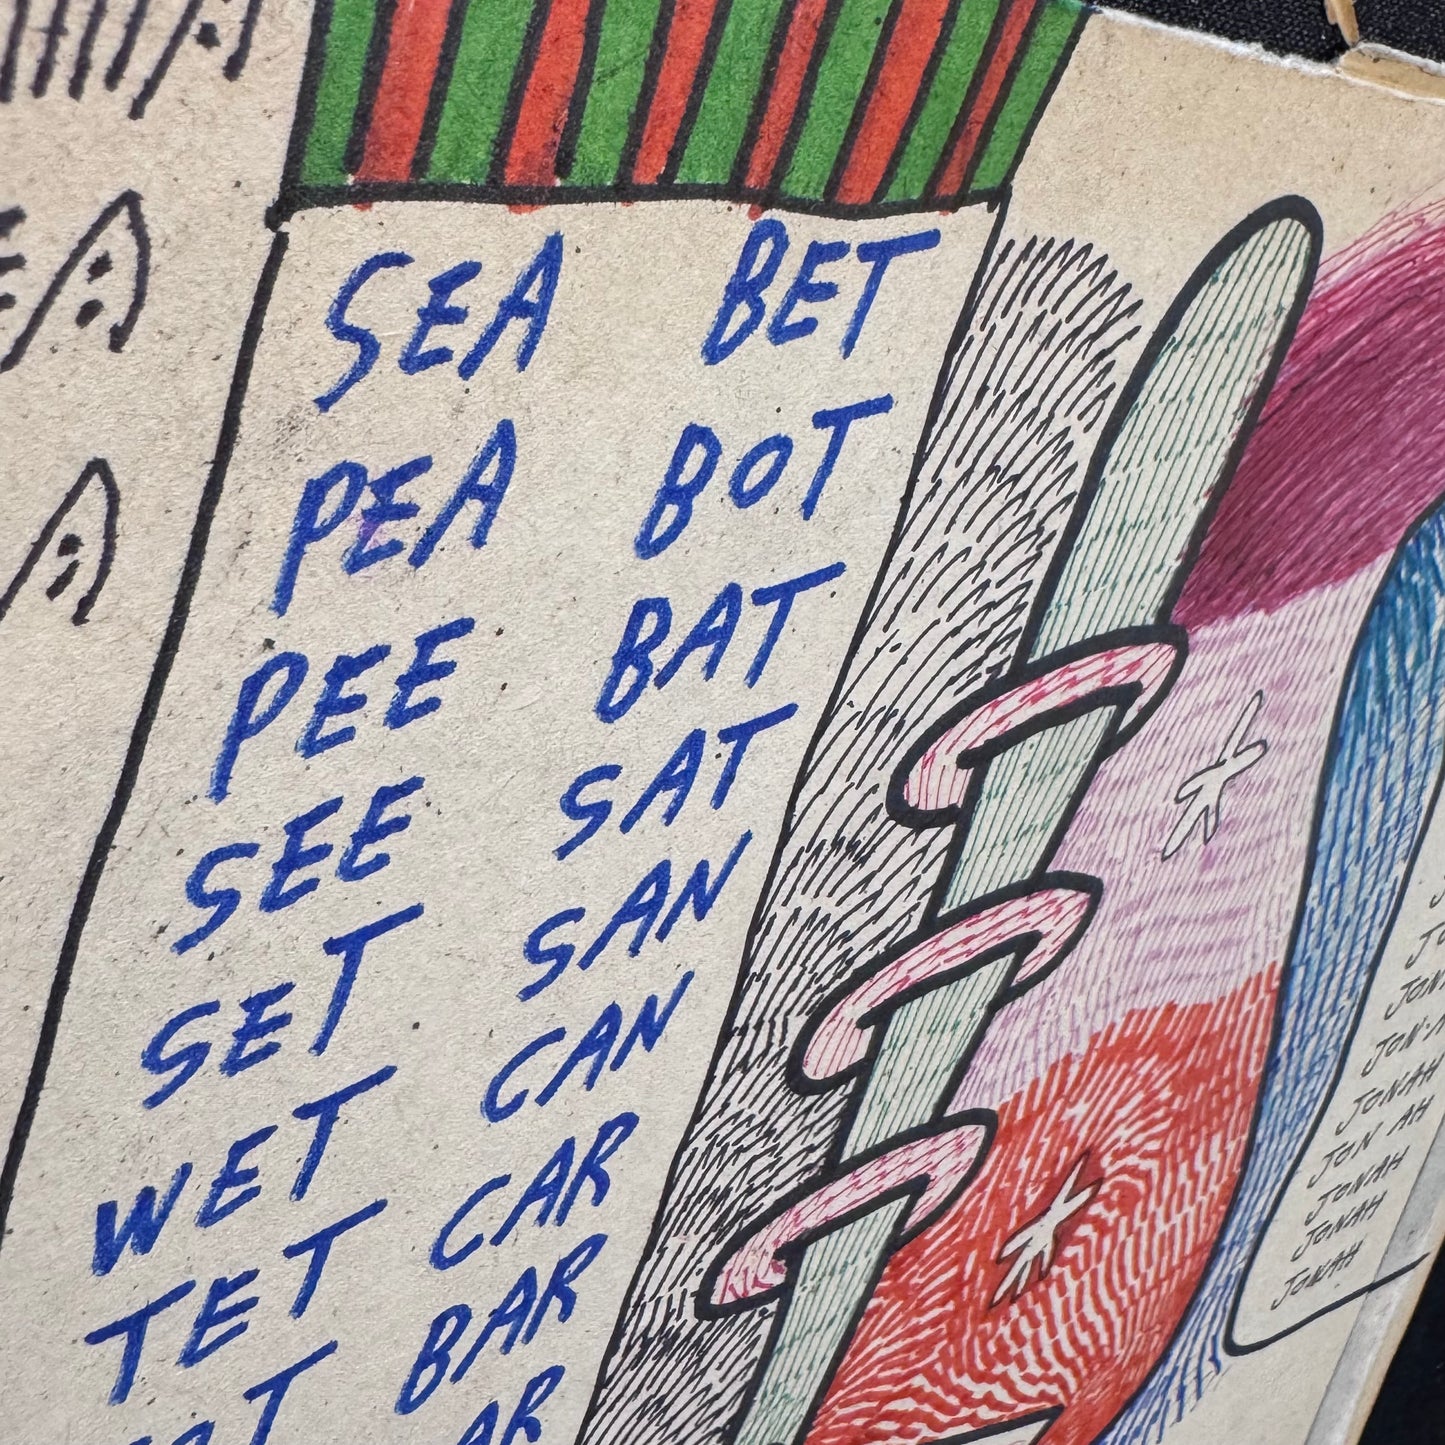 SEA BET
PEA BOT
PEE BAT
SEE SAT
SET SAN
WET CAN
TET CAR
BAR
JONAH
JON AH
JONAH
JONAH
JONAH